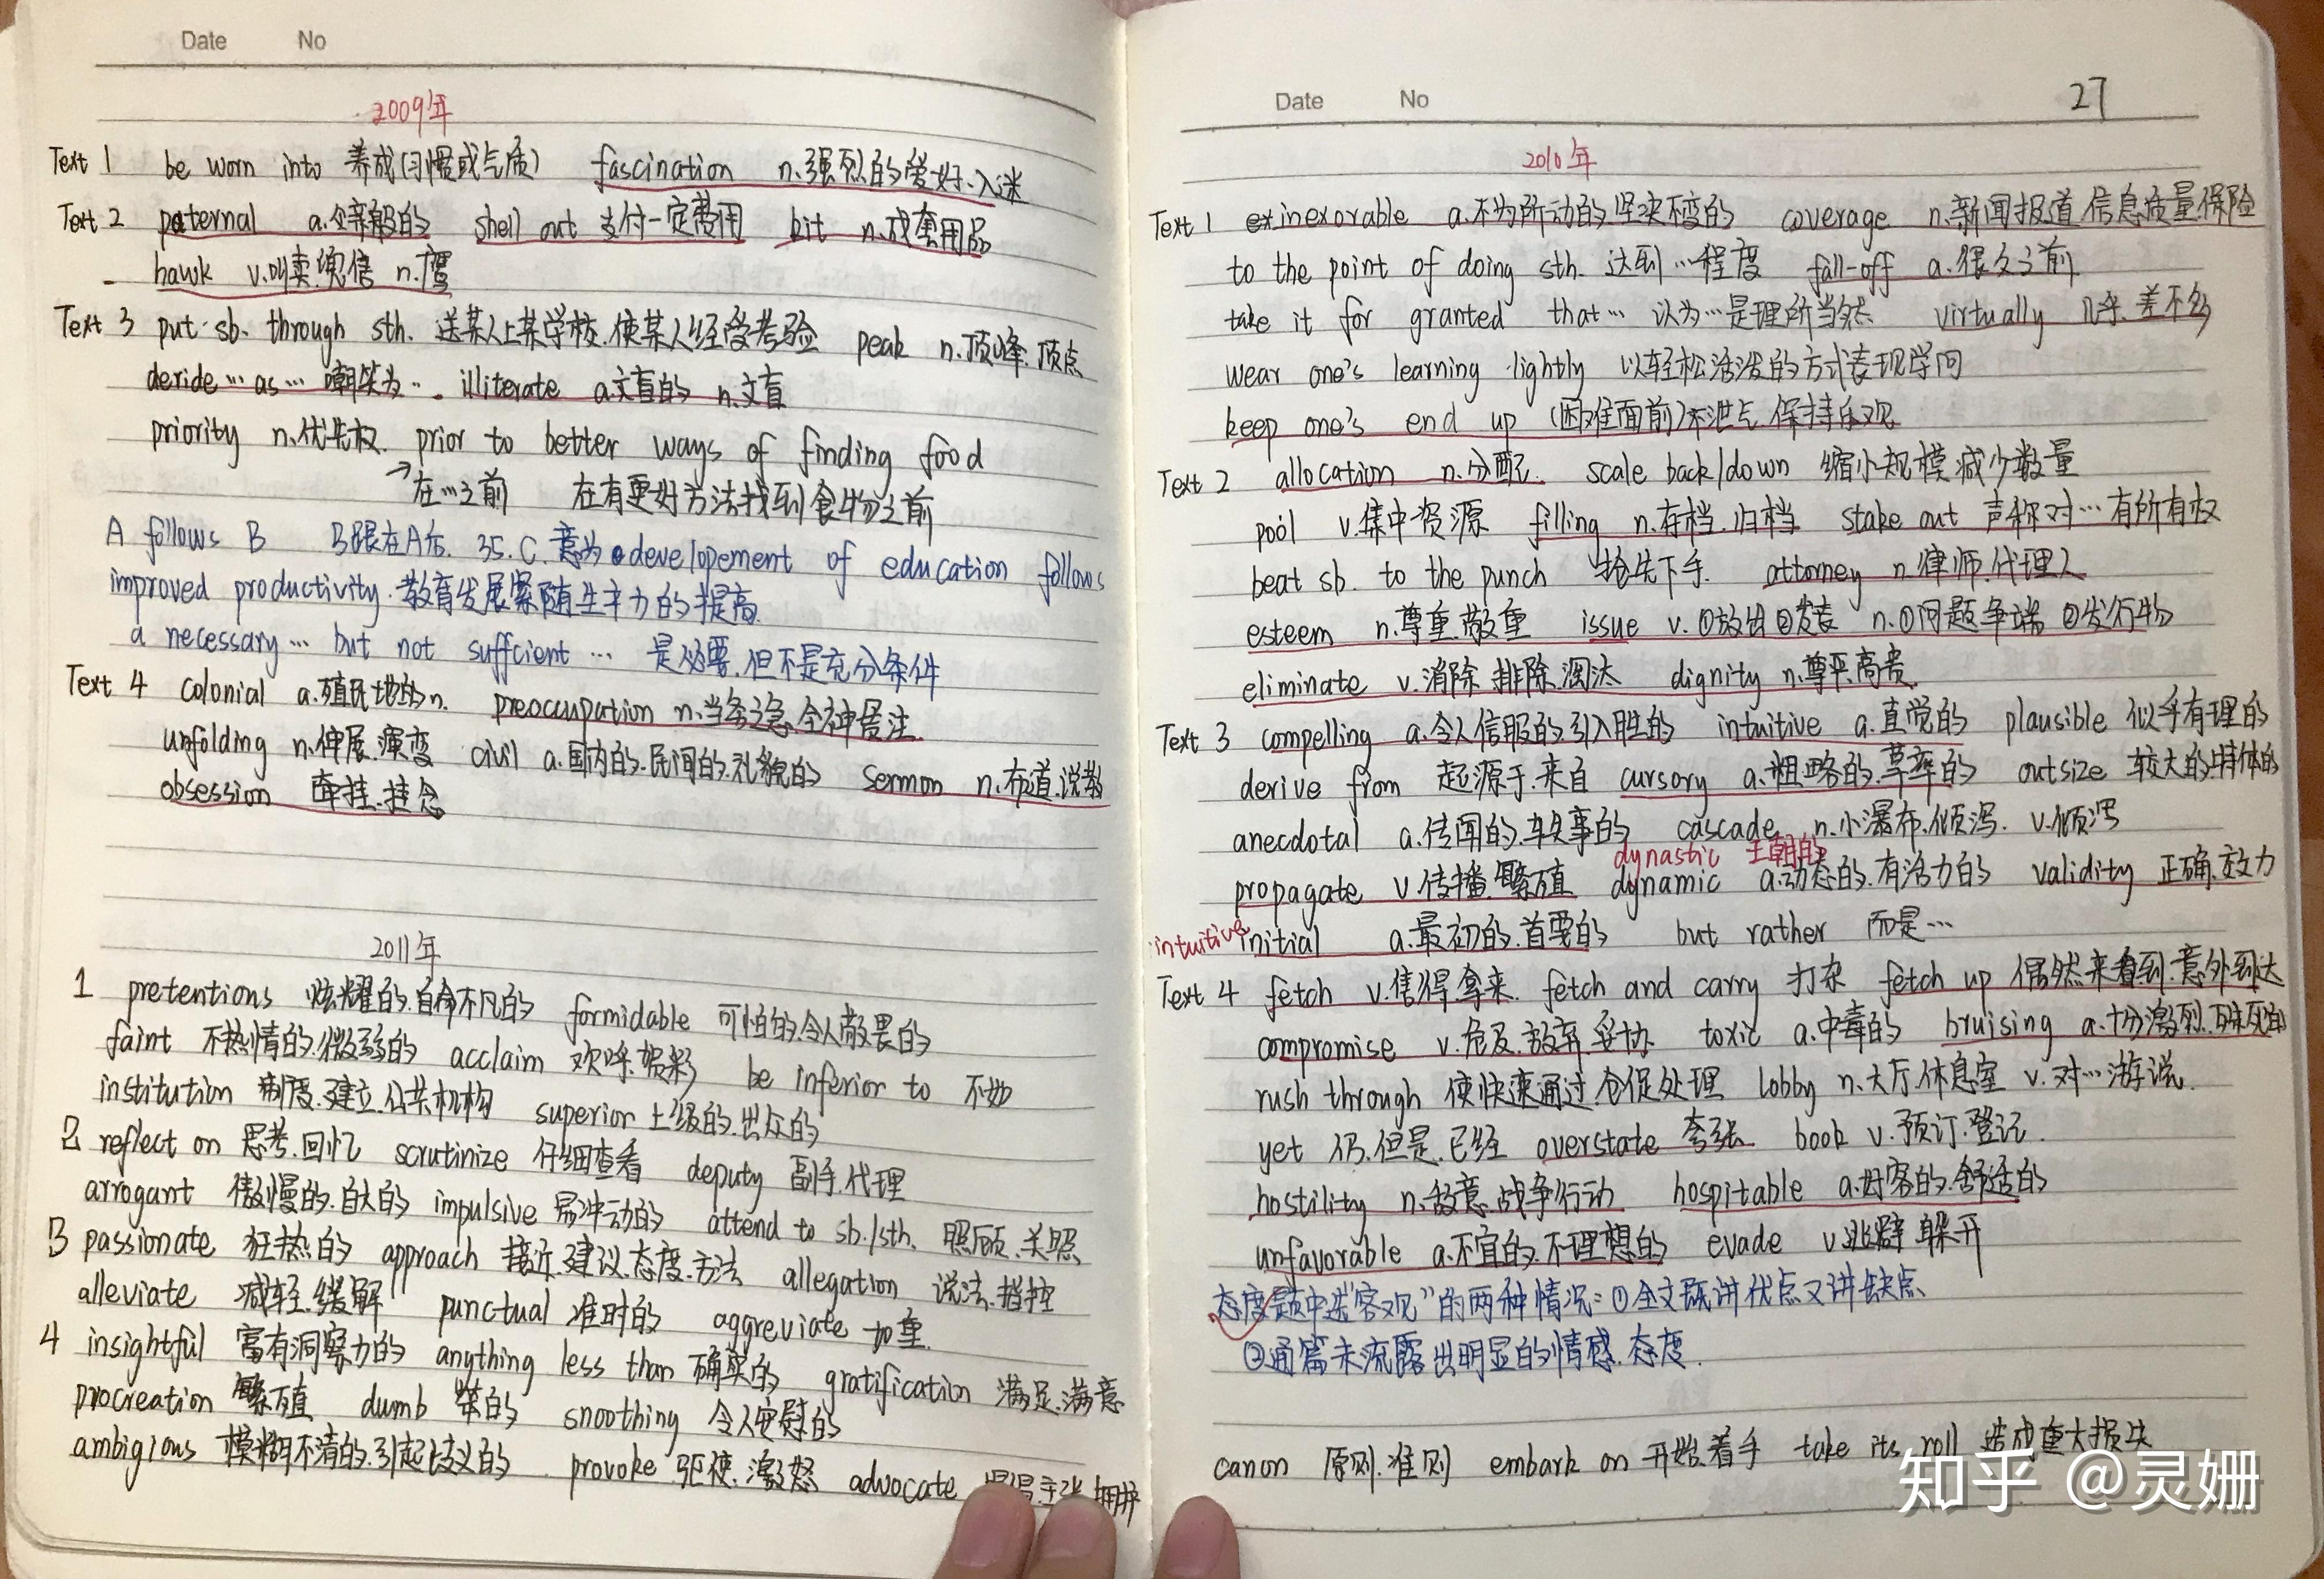 Date No
2009年
Text 1 be worn into 养成(习惯或气质) fascination n.强烈的爱好.入迷
Text 2 paternal a.父亲般的 shell out 支付一定费用 kit n.成套用品
hawk v.叫卖.兜售 n.鹰
Text 3 put sb. through sth. 送某人上某学校.使某人经受考验 peak n.顶峰.顶点
deride…as… 嘲笑为… illiterate a.文盲的 n.文盲
priority n.优先权 prior to better ways of finding food
→在…之前 在有更好方法找到食物之前
A follows B B跟在A后. 35.C.意为 developement of education follows
improved productivity.教育发展紧随生产力的提高.
a necessary… but not suffcient … 是必要.但不是充分条件
Text 4 colonial a.殖民地的n. preoccupation n.当务之急.全神贯注.
unfolding n.伸展.演变 civil a.国内的.民间的.礼貌的 sermon n.布道.说教
obsession 牵挂.挂念
2011年
1 pretentions 炫耀的.自命不凡的 formidable 可怕的.令人敬畏的
faint 不热情的.微弱的 acclaim 欢呼.喝彩 be inferior to 不如
institution 制度.建立.公共机构 superior 上级的.出众的
2 reflect on 思考.回忆 scrutinize 仔细查看 deputy 副手.代理
arrogant 傲慢的.自大的 impulsive 易冲动的 attend to sb./sth. 照顾.关照
3 passionate 狂热的 approach 接近.建议.态度.方法 allegation 说法.指控
alleviate 减轻.缓解 punctual 准时的 aggreviate 加重.
4 insightful 富有洞察力的 anything less than 确实的 gratification 满足.满意
procreation 繁殖 dumb 笨的 snoothing 令人安慰的
ambigious 模糊不清的.引起歧义的 provoke 驱使.激怒 advocate 主张.拥护
Date No 27
2010年
Text 1 inexorable a.不为所动的.坚决不变的 coverage n.新闻报道.信息质量.保险
to the point of doing sth. 达到…程度 fall-off a.很久之前
take it for granted that… 认为…是理所当然 virtually 几乎.差不多
wear one's learning lightly 以轻松活泼的方式表现学问
keep one's end up (困难面前)不泄气.保持乐观
Text 2 allocation n.分配. scale back/down 缩小规模.减少数量
pool v.集中资源 filling n.存档.归档 stake out 声称对…有所有权
beat sb. to the punch 抢先下手. attorney n.律师.代理人
esteem n.尊重.敬重 issue v.①放出②发表 n.①问题争端 ②发行物
eliminate v.消除.排除.淘汰 dignity n.尊严.高贵.
Text 3 compelling a.令人信服的.引入胜的 intuitive a.直觉的 plausible 似乎有理的
derive from 起源于.来自 cursory a.粗略的.草率的 outsize 较大的.特体的
anecdotal a.传闻的.轶事的 cascade n.小瀑布.倾泻. v.倾泻
dynastic 王朝的
propagate v.传播.繁殖 dynamic a.动态的.有活力的 validity 正确.效力
intuitive initial a.最初的.首要的 but rather 而是…
Text 4 fetch v.售得.拿来. fetch and carry 打杂 fetch up 偶然来到.意外到达
compromise v.危及.放弃.妥协 toxic a.中毒的 bruising a.十分激烈.殊死的
rush through 使快速通过.仓促处理 lobby n.大厅.休息室 v.对…游说.
yet 仍.但是.已经 overstate 夸张 book v.预订.登记.
hostility n.敌意.战争行动 hospitable a.好客的.舒适的
unfavorable a.不宜的.不理想的 evade v.逃避.躲开
态度题中选"客观"的两种情况:①全文既讲优点又讲缺点
②通篇未流露出明显的情感.态度.
canon 原则.准则 embark on 开始.着手 take its roll 造成重大损失
知乎 @灵姗